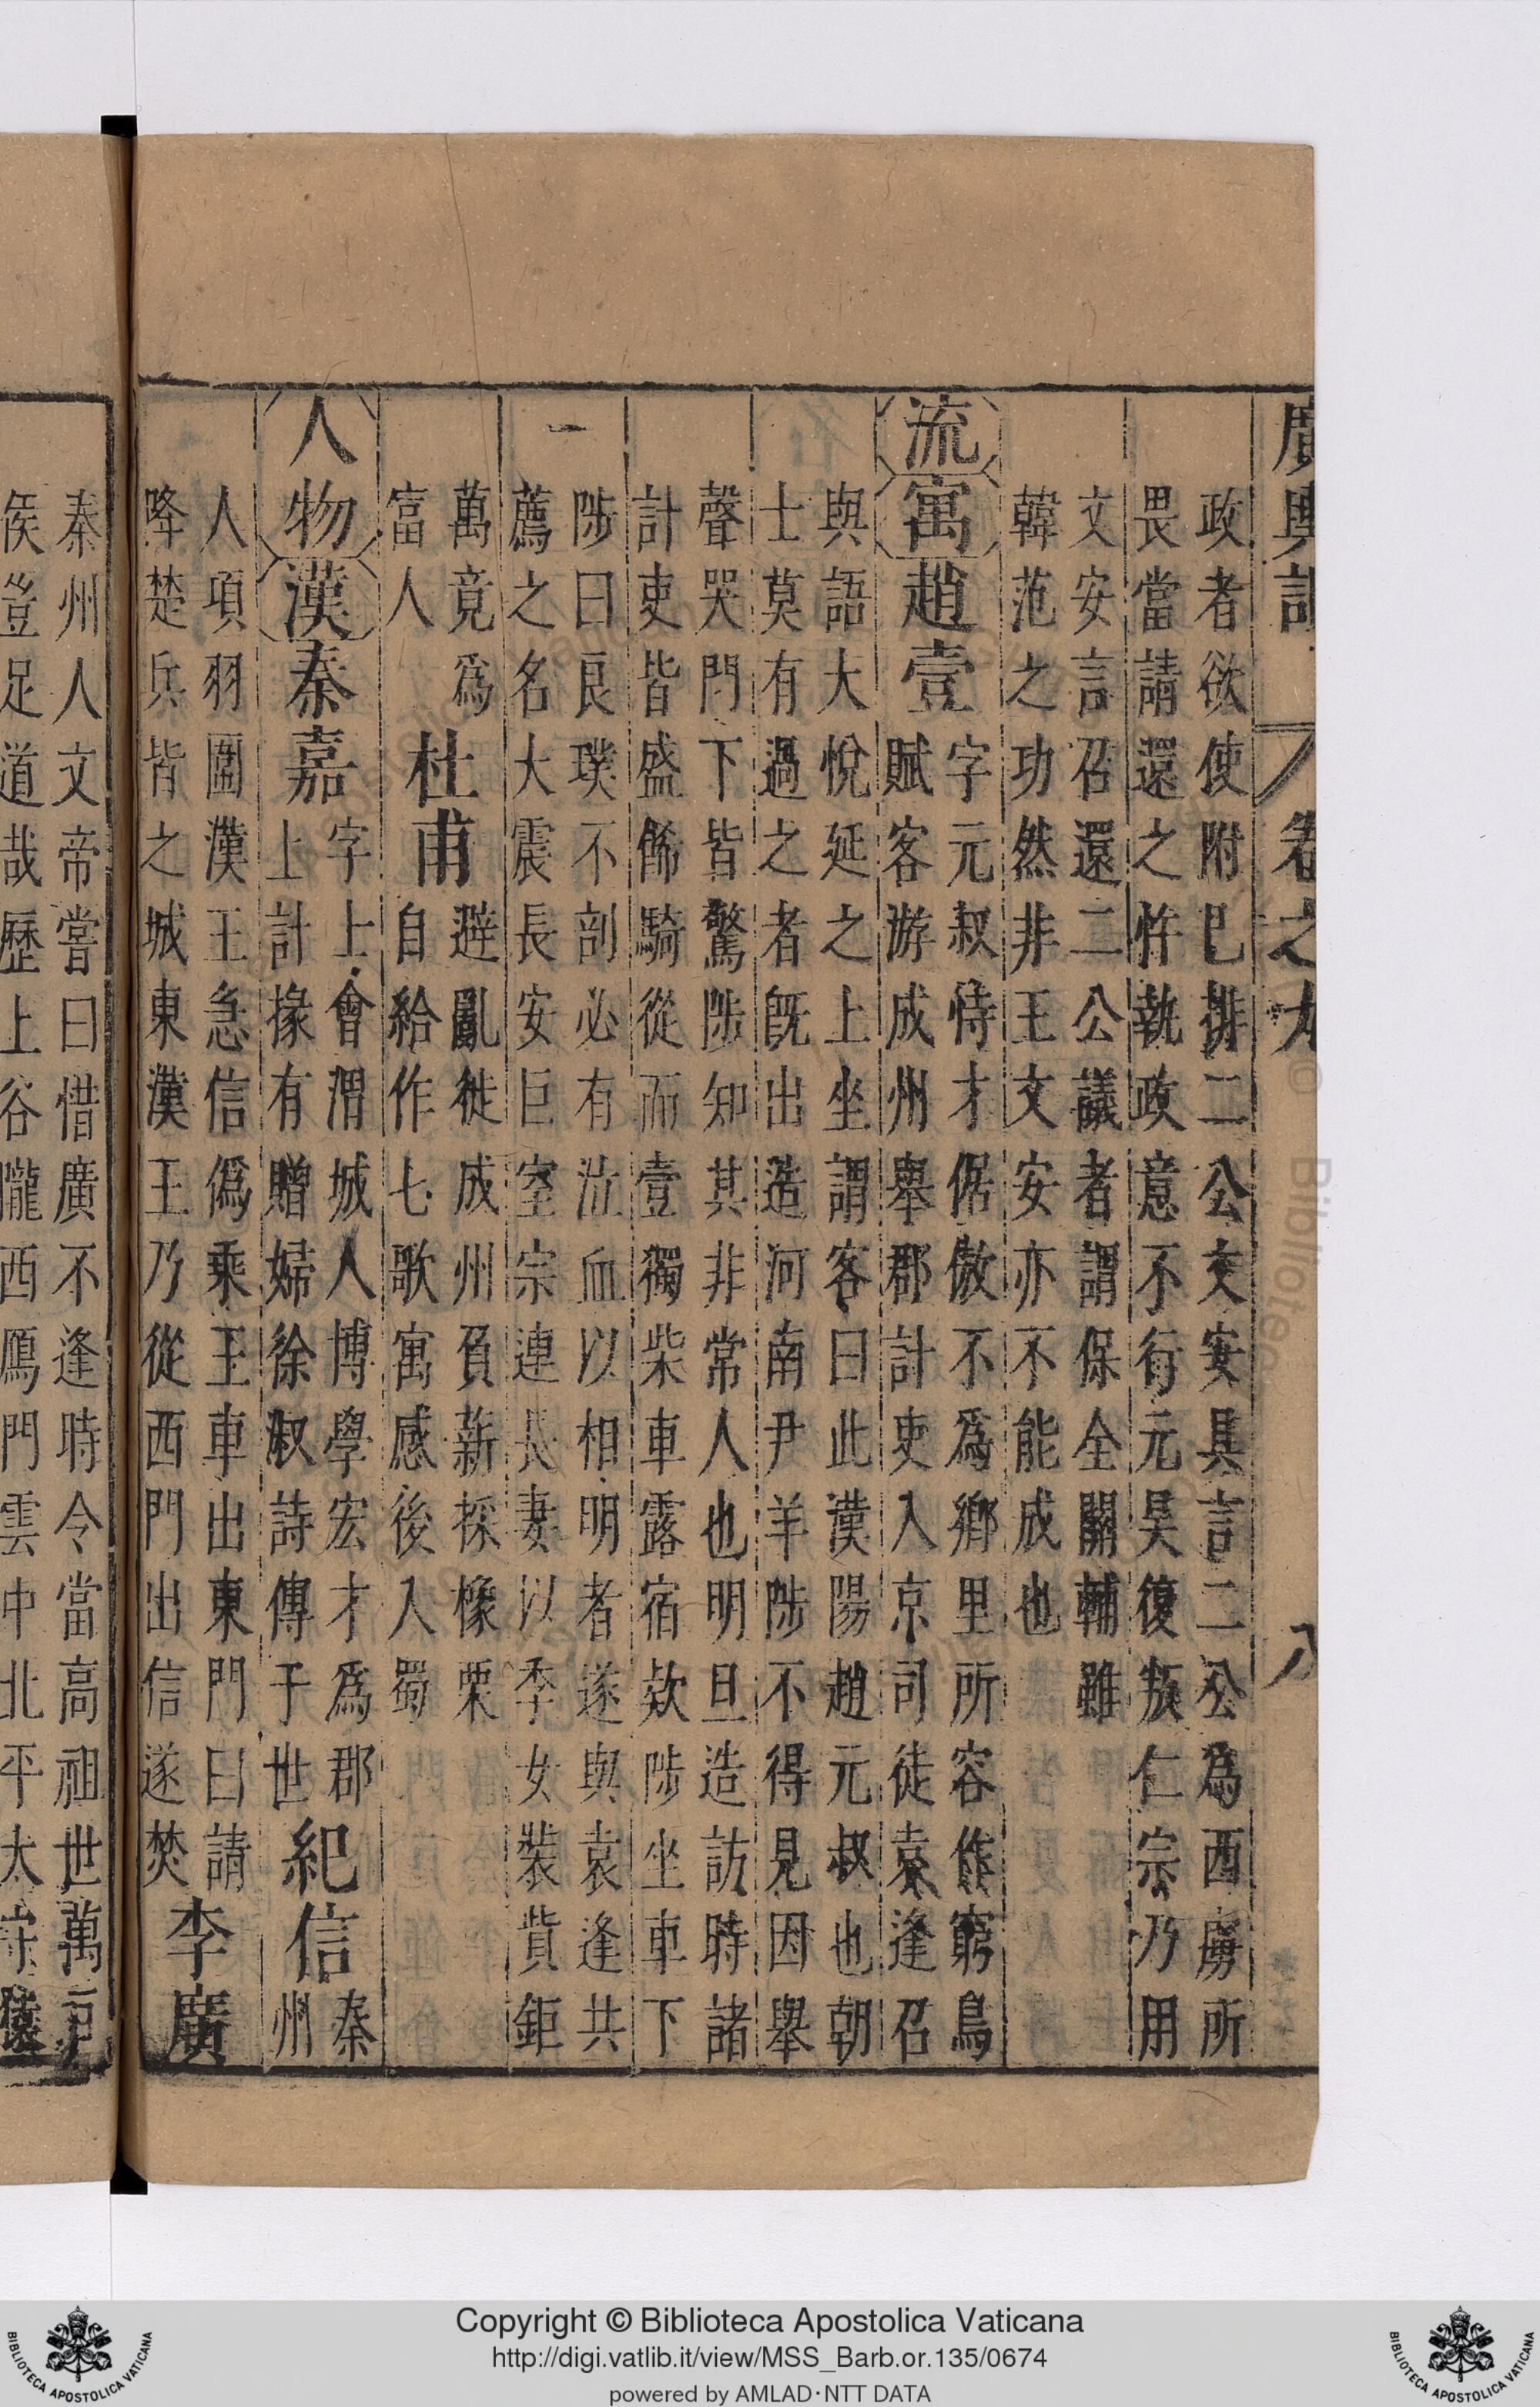 廣輿記 卷之九 八
政者欲使附已排二公文安具言二公爲西虜所
畏當請還之忤執政意不行元昊復叛仁宗乃用
文安言召還二公議者謂保全關輔雖
韓范之功然非王文安亦不能成也
流寓 趙壹
字元叔恃才倨傲不爲鄉里所容作窮鳥
賦客游成州舉郡計吏入京司徒袁逢召
與語大悅延之上坐謂客曰此漢陽趙元叔也朝
士莫有過之者旣出造河南尹羊陟不得見因舉
聲哭門下皆驚陟知其非常人也明旦造訪時諸
計吏皆盛餙騎從而壹獨柴車露宿欵陟坐車下
陟曰良璞不剖必有泣血以相明者遂與袁逢共
薦之名大震長安巨室宗連長妻以季女裝貲鉅
萬竟爲
富人
杜甫
避亂徙成州負薪採橡栗
自給作七歌寓感後入蜀
人物 漢 秦嘉
字上會渭城人博學宏才爲郡
上計掾有贈婦徐淑詩傳于世
紀信
秦
州
人項羽圍漢王急信僞乘王車出東門曰請
降楚兵皆之城東漢王乃從西門出信遂焚
李廣
秦州人文帝嘗曰惜廣不逢時令當高祖世萬戸
侯豈足道哉歷上谷隴西鴈門雲中北平太守
Copyright © Biblioteca Apostolica Vaticana
http://digi.vatlib.it/view/MSS_Barb.or.135/0674
powered by AMLAD·NTT DATA
BIBLIOTECA APOSTOLICA VATICANA
BIBLIOTECA APOSTOLICA VATICANA